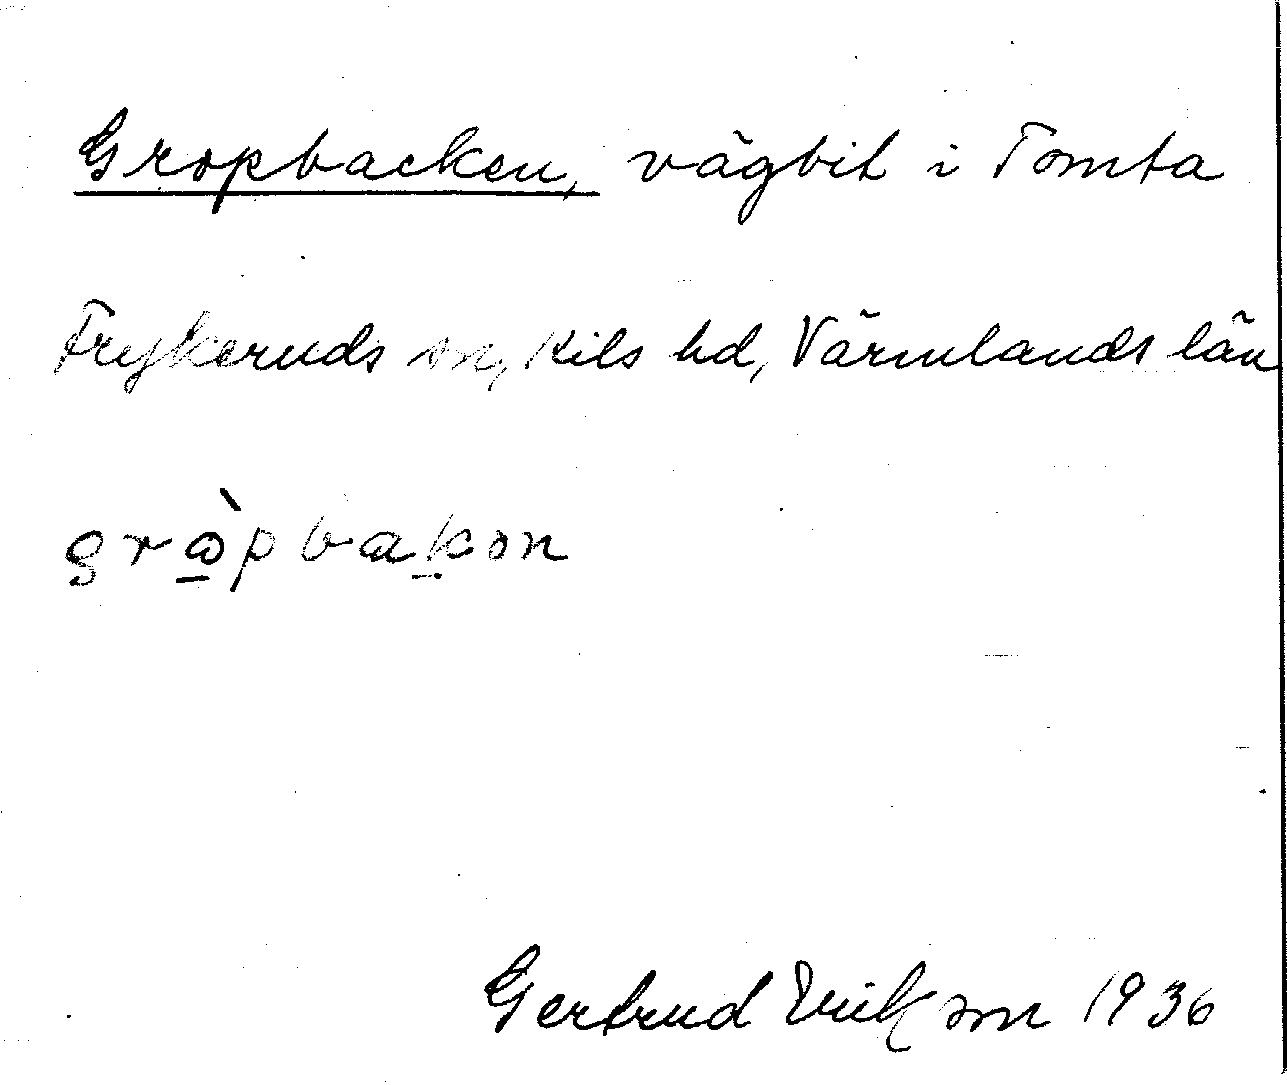 Gropbacken, vägbit i Tomta
Frykeruds sn, Kils hd, Värmlands län
grɷ̀pbakən
Gertrud Erikson 1936